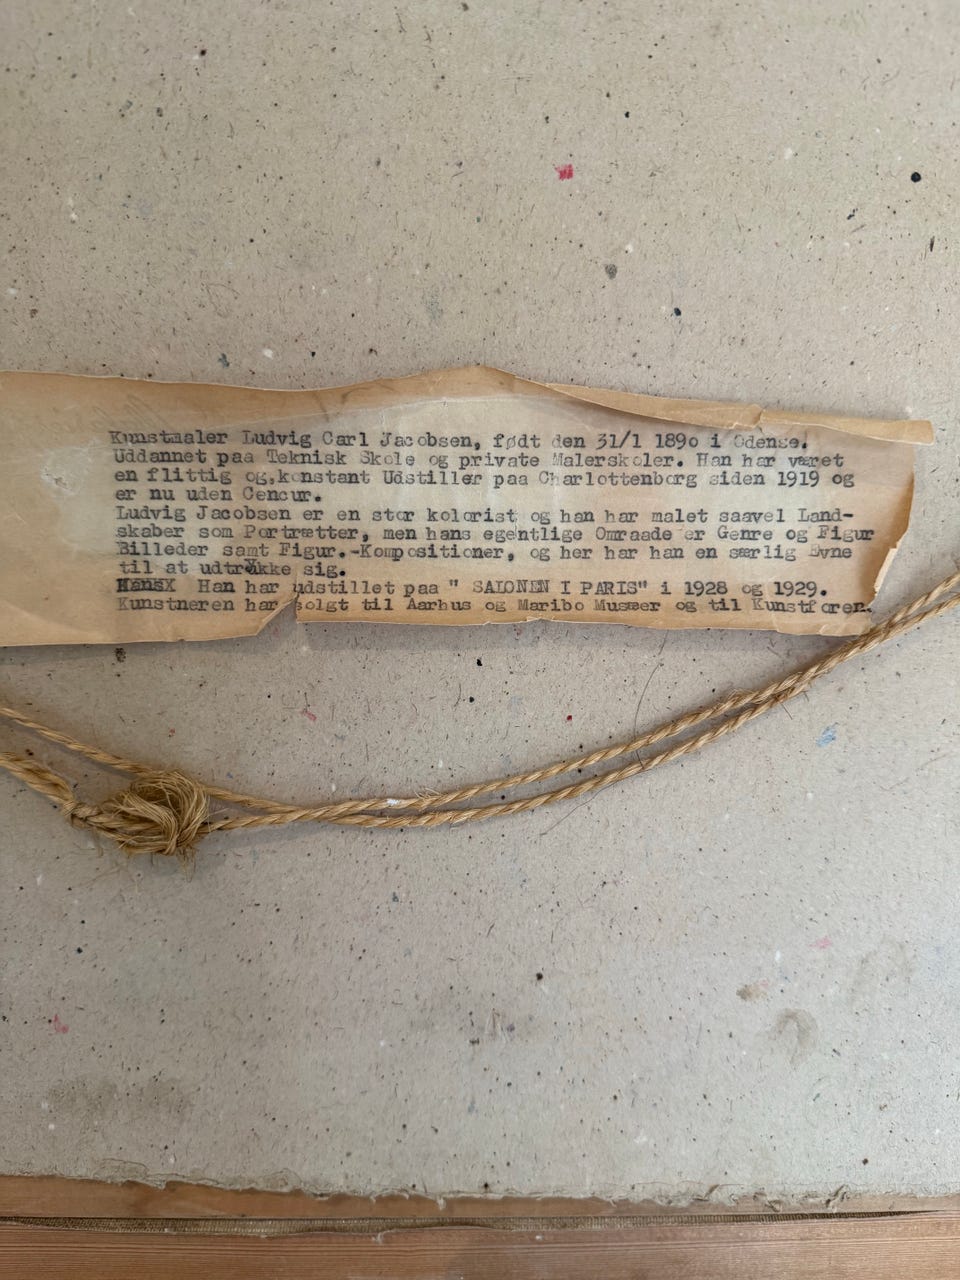 Kunstmaler Ludvig Carl Jacobsen, født den 31/1 1890 i Odense.
Uddannet paa Teknisk Skole og private Malerskoler. Han har været
en flittig og,konstant Udstiller paa Charlottenborg siden 1919 og
er nu uden Cencur.
Ludvig Jacobsen er en stor kolorist og han har malet saavel Land-
skaber som Portrætter, men hans egentlige Omraade er Genre og Figur
Billeder samt Figur.-Kompositioner, og her har han en særlig Evne
til at udtrykke sig.
Han har udstillet paa " SALONEN I PARIS" i 1928 og 1929.
Kunstneren har solgt til Aarhus og Maribo Musæer og til Kunstforen.